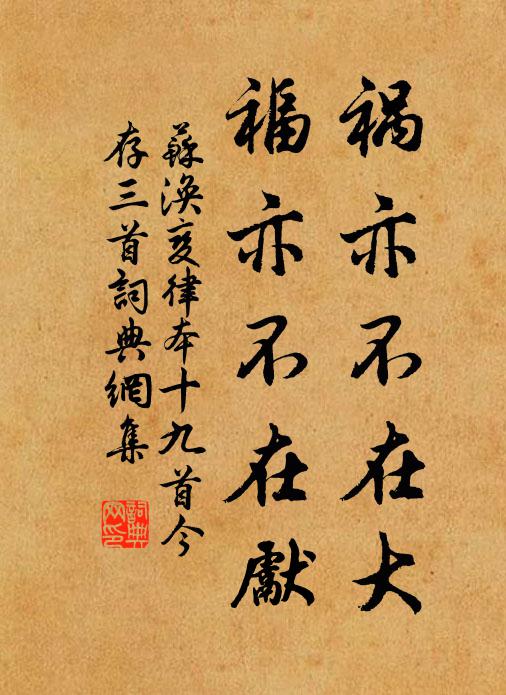 祸亦不在大
福亦不在獻
蘇渙変律本十九首今
存三首詞典網集
詞典网印